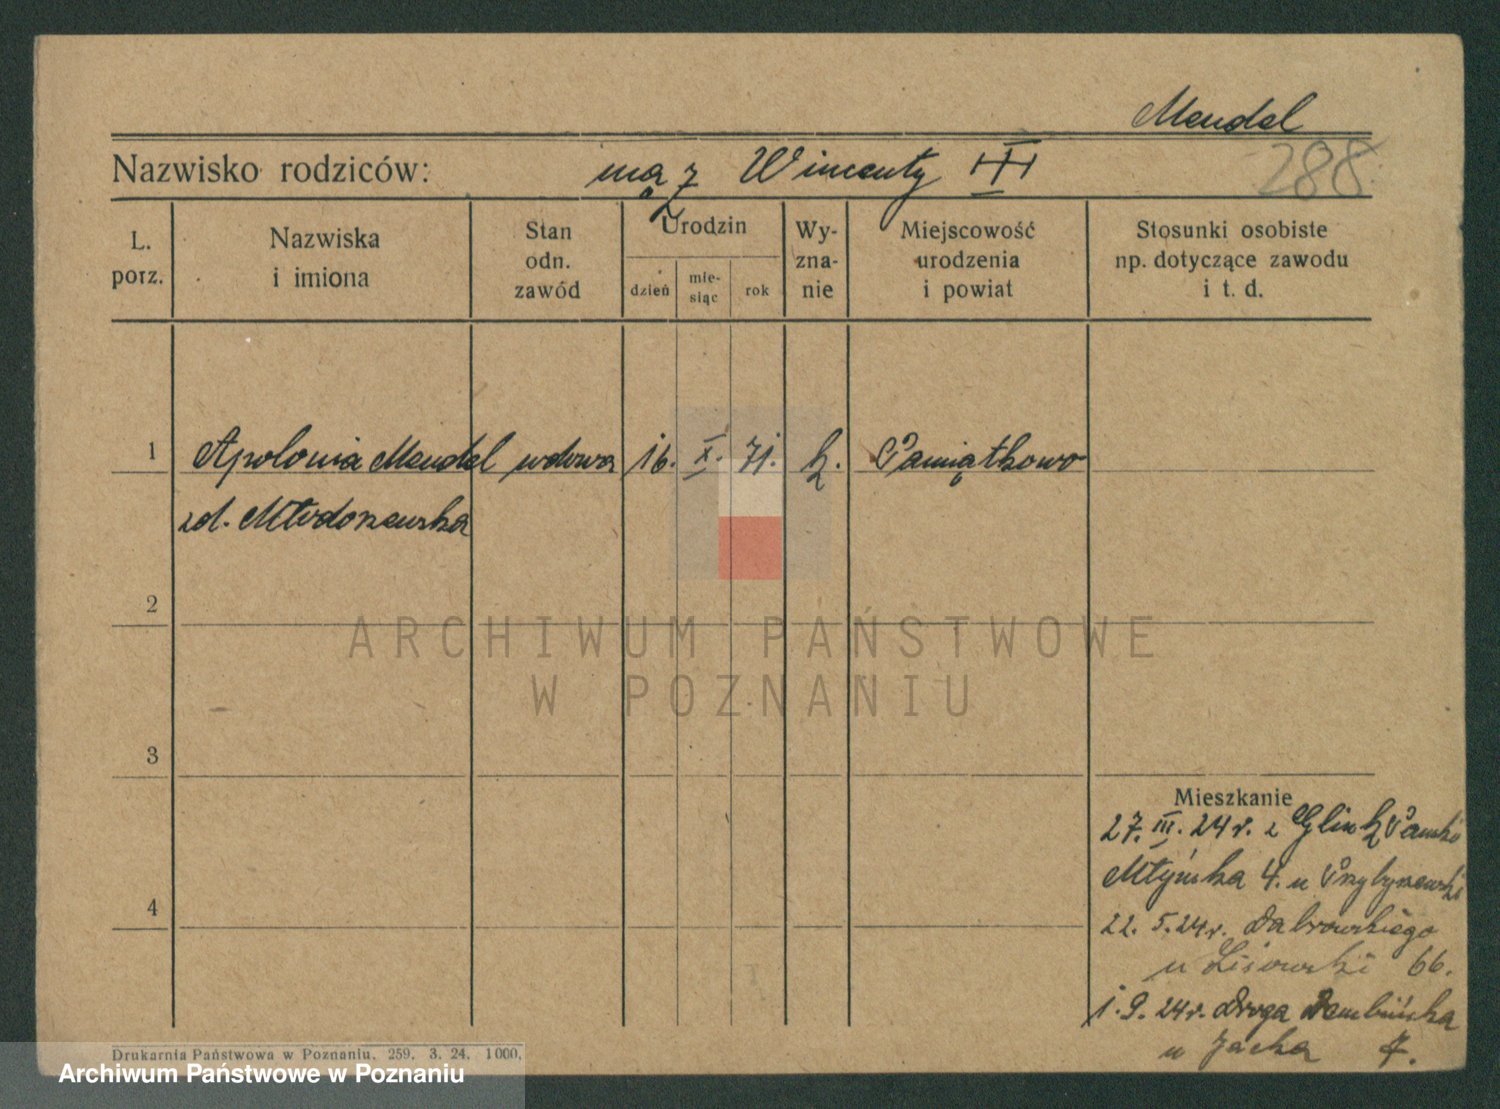 Mendel
Nazwisko rodziców: mąż Wincenty III 288
L. porz. Nazwiska i imiona Stan odn. zawód Urodzin dzień mie-siąc rok Wy-zna-nie Miejscowość urodzenia i powiat Stosunki osobiste np. dotyczące zawodu i t. d.
1 Apolonia Mendel wdowa 16. X. 71. k. Pamiątkowo
zd. Młodozewska
2
ARCHIWUM PAŃSTWOWE
W POZNANIU
3
Mieszkanie
27. III. 24 r. z
Młyńska 4. u Przybyszewski
4
22. 5. 24 r. Dabrowskiego
u Lisowski 66.
1. 9. 24 r. Droga Dembińska
u Jacka 7.
Drukarnia Państwowa w Poznaniu. 259. 3. 24. 1000.
Archiwum Państwowe w Poznaniu